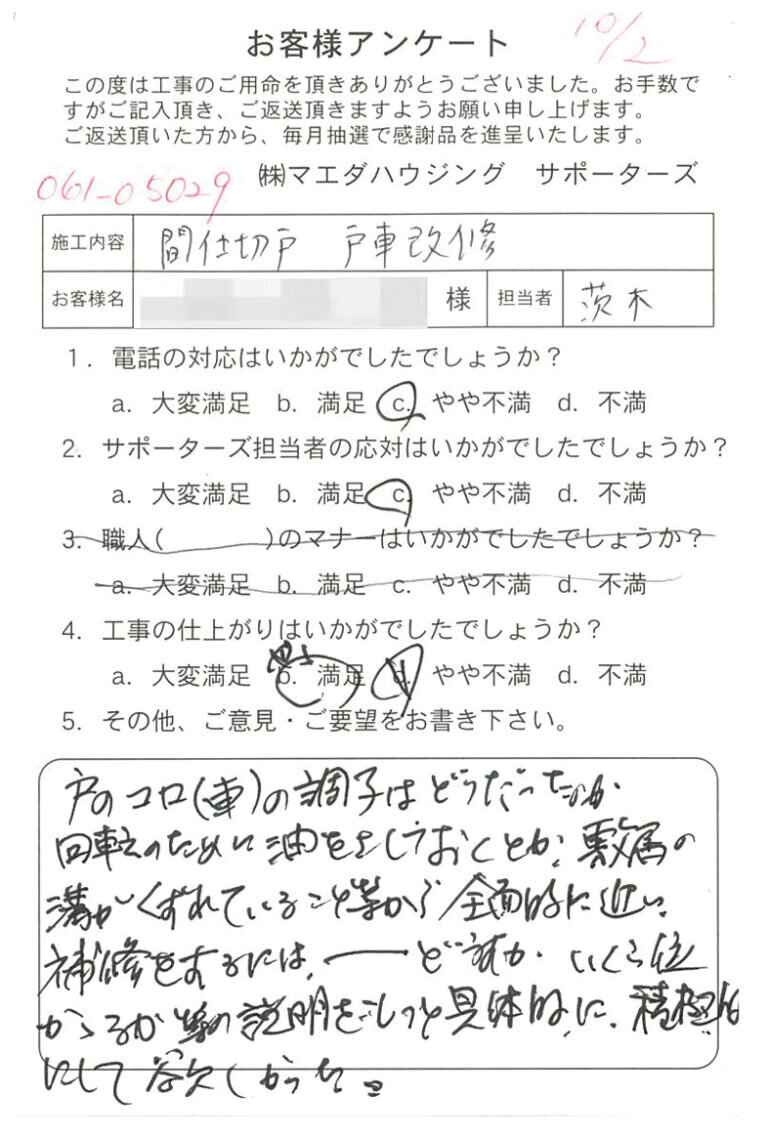 10/2
お客様アンケート
この度は工事のご用命を頂きありがとうございました。お手数で
すがご記入頂き、ご返送頂きますようお願い申し上げます。
ご返送頂いた方から、毎月抽選で感謝品を進呈いたします。
061-05029 ㈱マエダハウジング サポーターズ
施工内容 間仕切戸 戸車改修
お客様名 様 担当者 茨木
1. 電話の対応はいかがでしたでしょうか?
a. 大変満足 b. 満足 c. やや不満 d. 不満
2. サポーターズ担当者の応対はいかがでしたでしょうか?
a. 大変満足 b. 満足 c. やや不満 d. 不満
3. 職人( )のマナーはいかがでしたでしょうか?
a. 大変満足 b. 満足 c. やや不満 d. 不満
4. 工事の仕上がりはいかがでしたでしょうか?
a. 大変満足 b. 満足 c. やや不満 d. 不満
5. その他、ご意見・ご要望をお書き下さい。
戸のコロ(車)の調子はどうだったか
回転のために油をさしておくとか、の
溝がくずれていること等から全面的に近い
補修をするには、――どうすか、いくら位
かかるか等の説明をもっと具体的に、積極的
にして欲しかった。